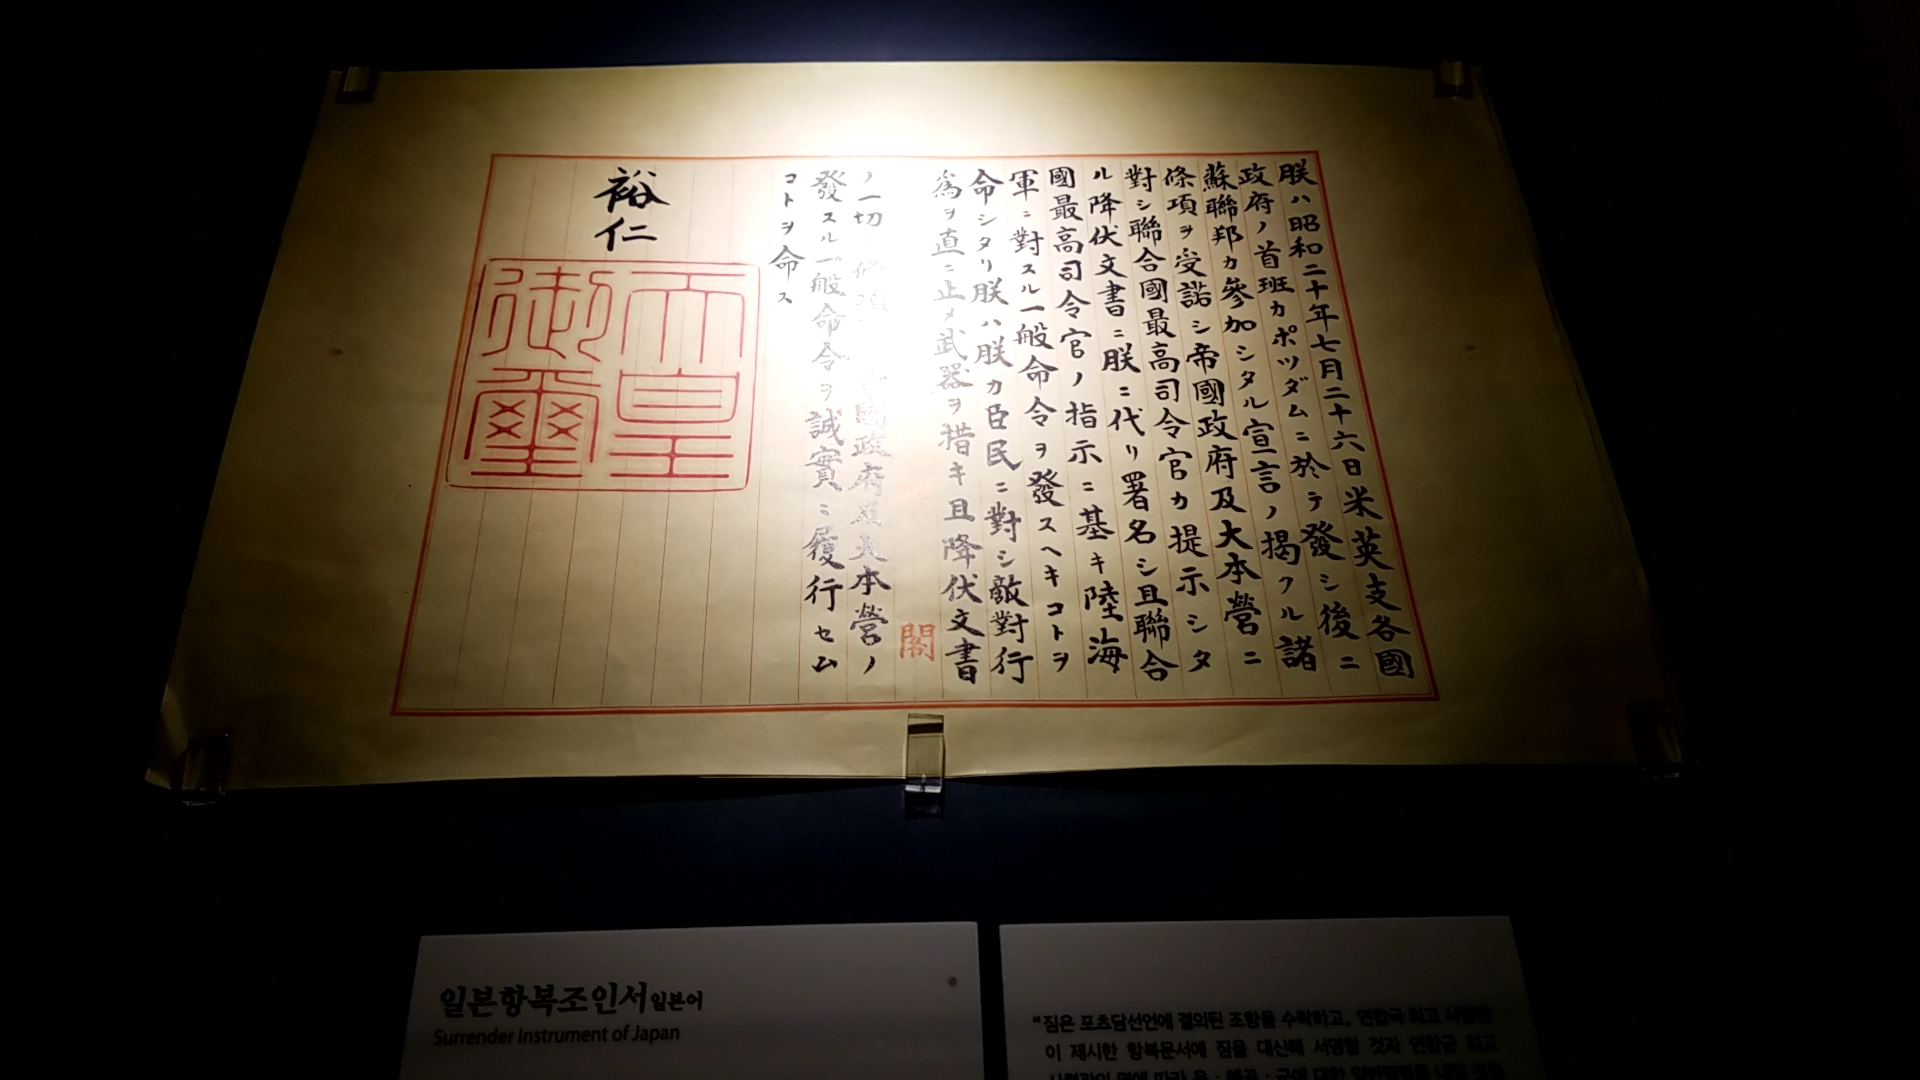 朕ハ昭和二十年七月二十六日米英支各國
政府ノ首班カポツダムニ於テ發シ後ニ
蘇聯邦カ參加シタル宣言ノ掲クル諸
條項ヲ受諾シ帝國政府及大本營ニ
對シ聯合國最高司令官カ提示シタ
ル降伏文書ニ朕ニ代リ署名シ且聯合
國最高司令官ノ指示ニ基キ陸海
軍ニ對スル一般命令ヲ發スヘキコトヲ
命シタリ朕ハ朕カ臣民ニ對シ敵對行
爲ヲ直ニ止メ武器ヲ措キ且降伏文書
閣
ノ一切ノ條項 國政府及大本營ノ
發スル一般命令ヲ誠實ニ履行セム
コトヲ命ス
裕仁
天皇
御璽
일본항복조인서 일본어
Surrender Instrument of Japan
“짐은 포츠담선언에 결의된 조항을 수락하고, 연합국 최고 사령관
이 제시한 항복문서에 짐을 대신해 서명할 것과 연합군 최고